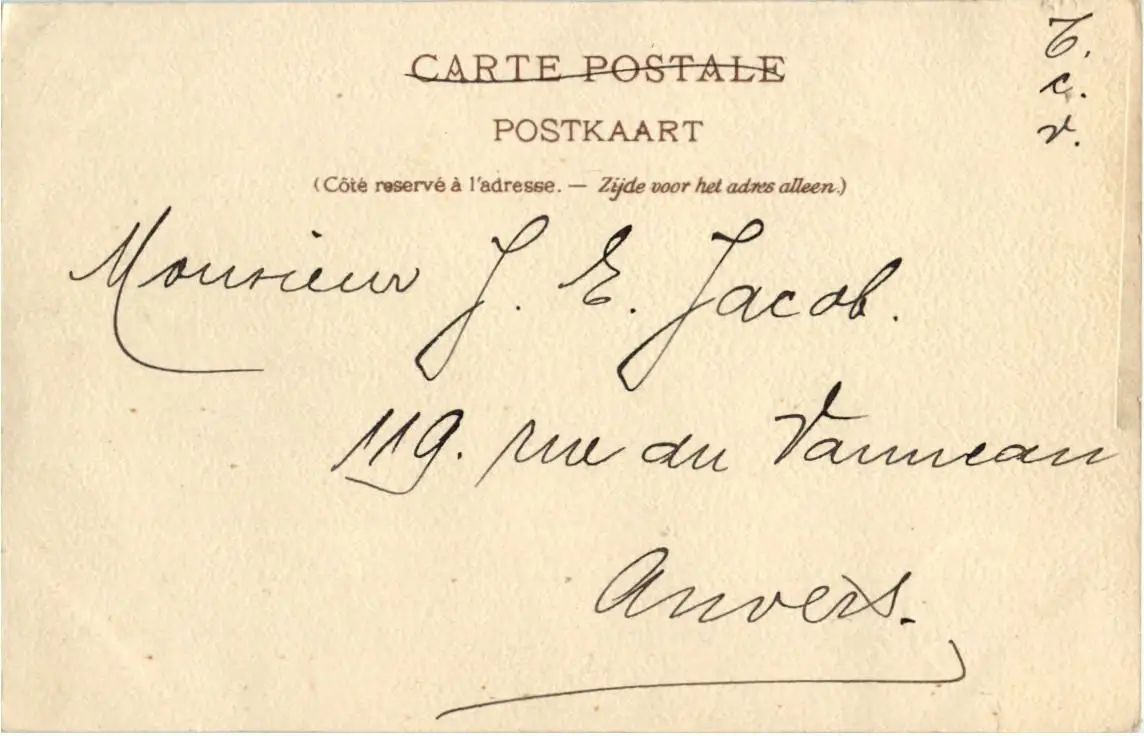 CARTE POSTALE
POSTKAART
(Côté reservé à l'adresse. — Zijde voor het adres alleen.)
T.
c.
v.
Monsieur J. E. Jacob.
119. rue du Vanneau
Anvers.